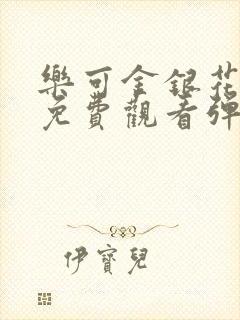 樂可金銀花
免費觀看彈
伊寶兒